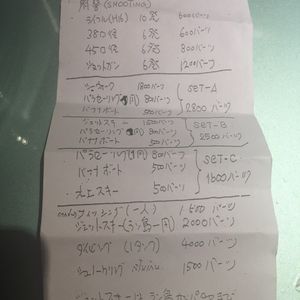 射撃 (SHOOTING)
ライフル(M16) 10発 600バーツ
38口径 6発 600バーツ
45口径 6発 800バーツ
ショットガン 6発 1200バーツ
シーウォーク 1800バーツ
パラセーリング(1回) 800バーツ
バナナボート 500バーツ
SET-A
2800バーツ
ジェットスキー 1500バーツ
パラセーリング(1回) 800バーツ
バナナボート 500バーツ
SET-B
2500バーツ
パラセーリング(1回) 800バーツ
バナナボート 500バーツ
水上スキー 500バーツ
SET-C
1600バーツ
フィッシング(一人) 1500バーツ
ジェットスキー(ラン島一周) 2000バーツ
ダイビング(1タンク) 4000バーツ
シュノーケリング 1500バーツ
ジェットスキーは